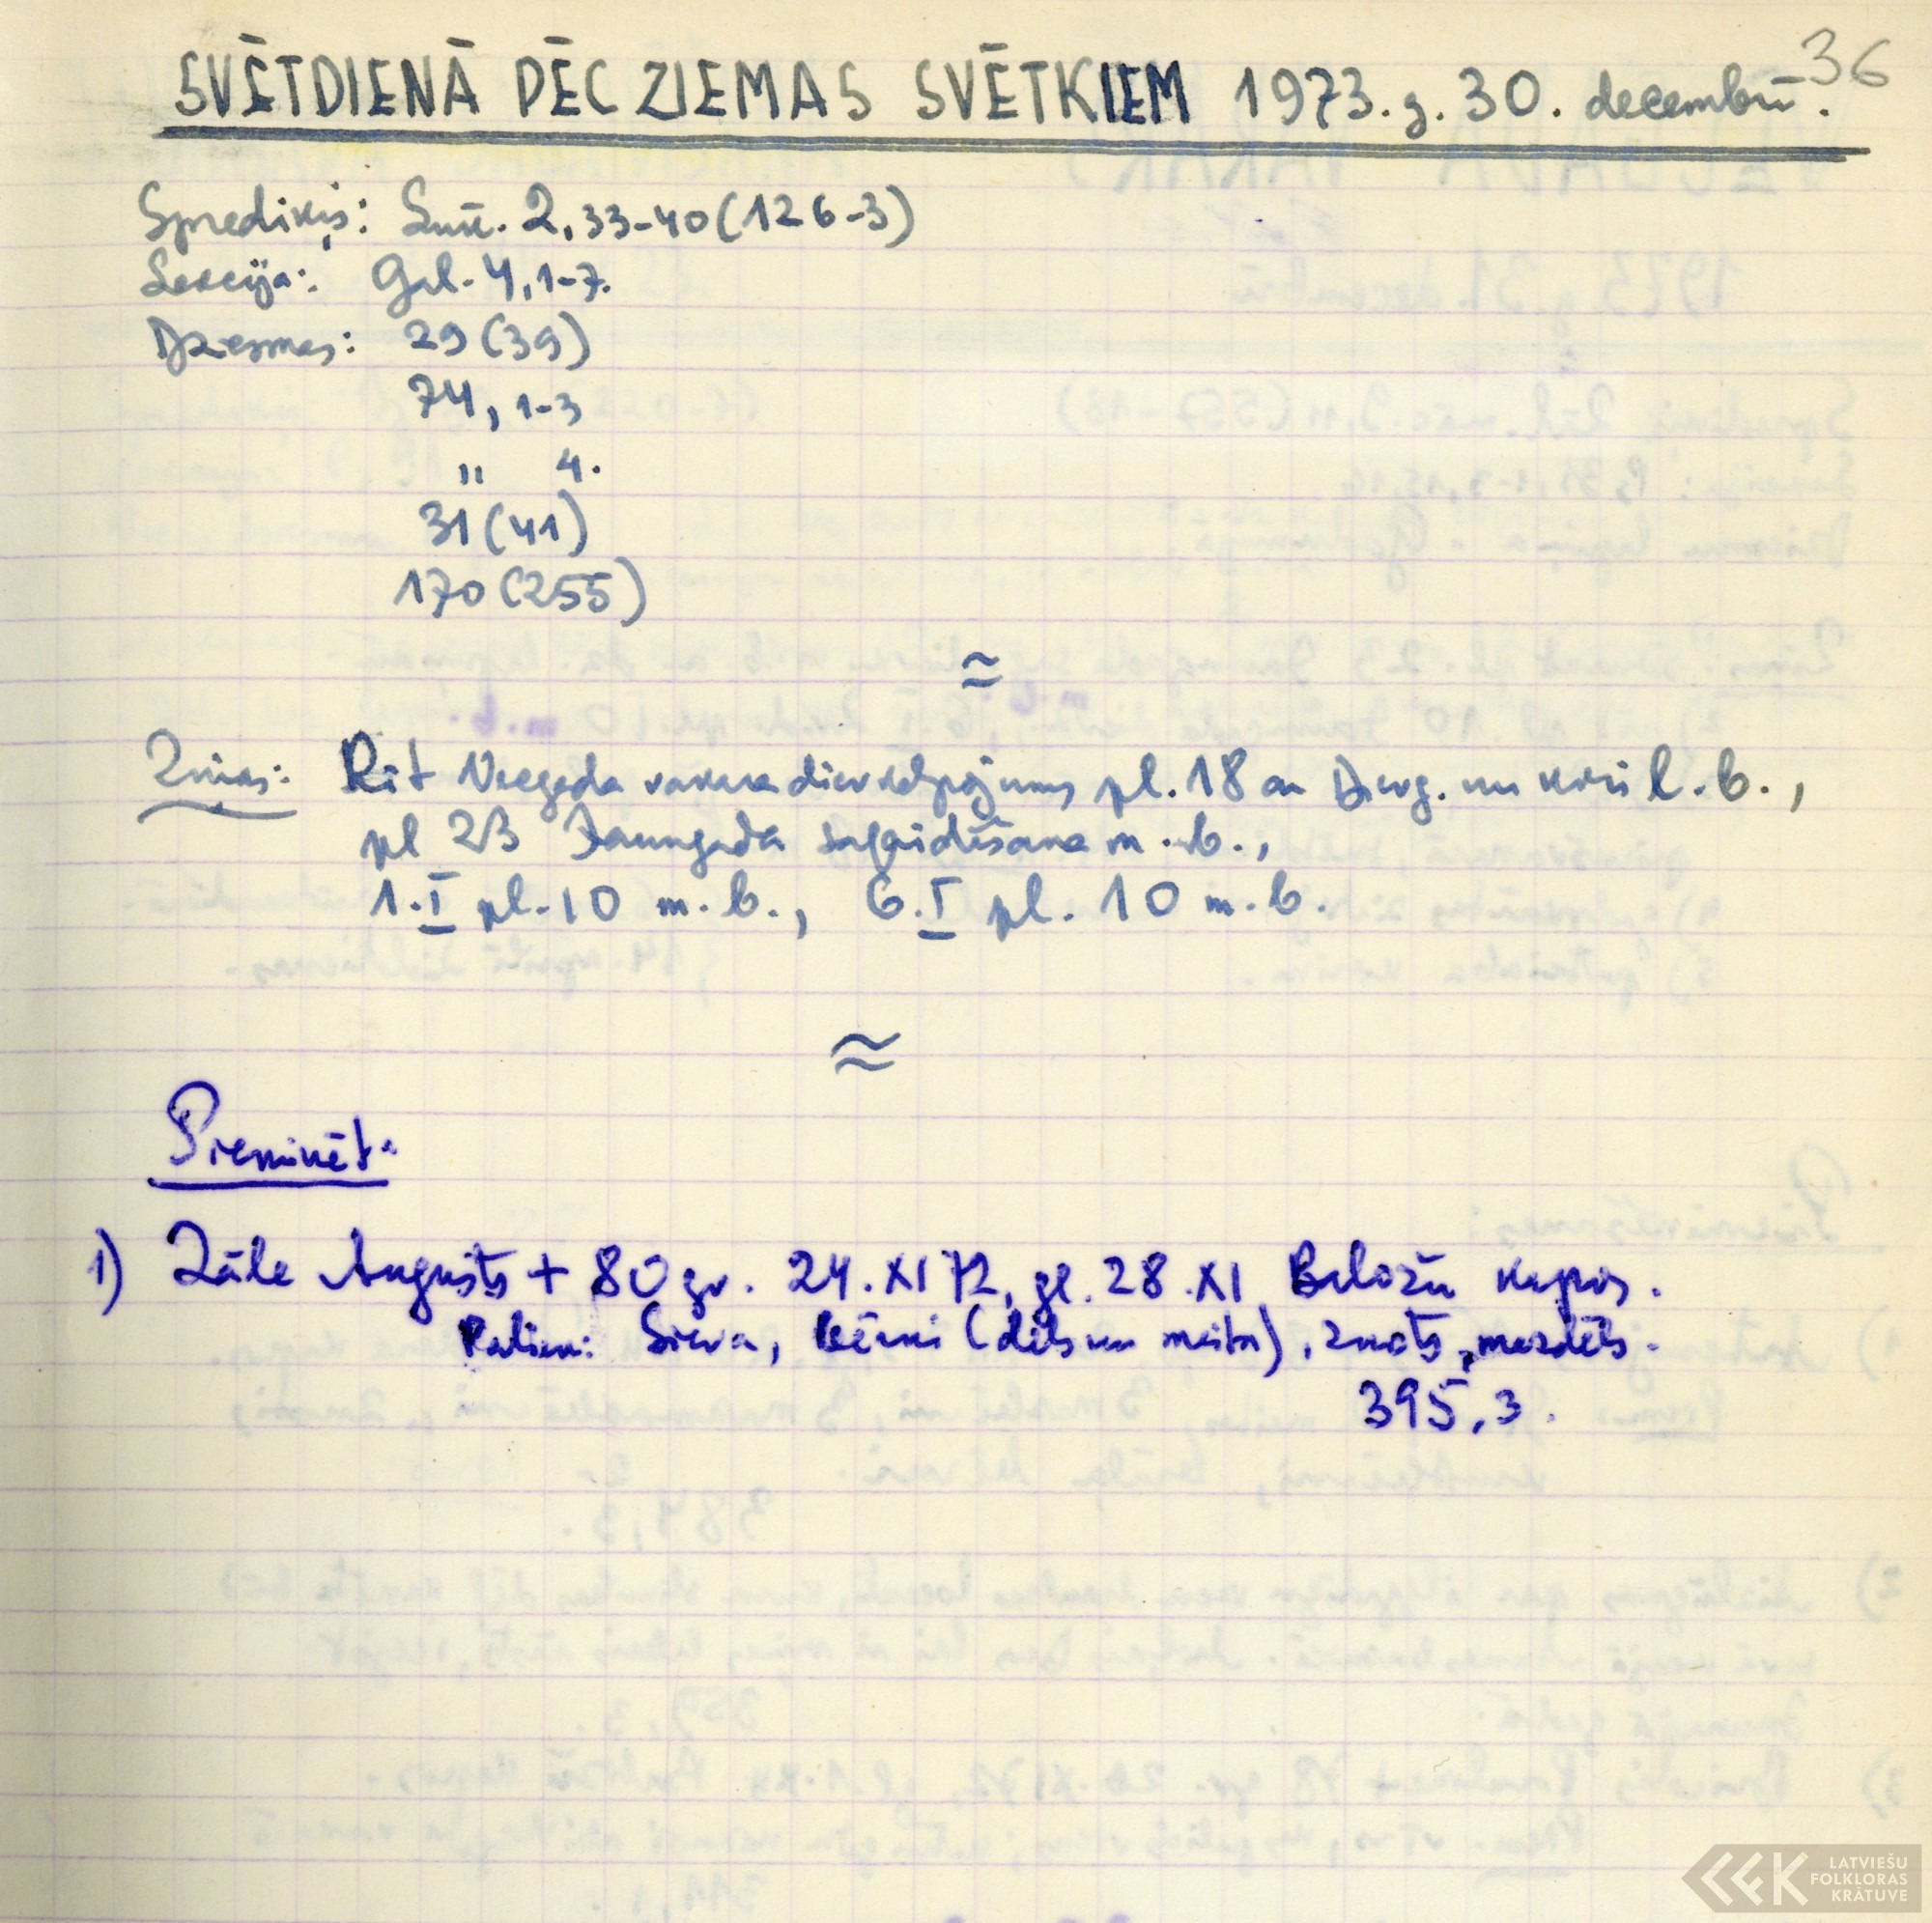 36
SVĒTDIENĀ PĒC ZIEMAS SVĒTKIEM 1973. g. 30. decembrī.
Sprediķis: Lūk. 2,33-40 (126-3)
Lekcija: Gal. 4,1-7.
Dziesmas: 29 (39)
74, 1-3
" 4.
31 (41)
170 (255)
≈
Ziņas: Rīt Vecgada vakara dievkalpojums pl. 18 ar Dievg. un kori l. b.,
pl 23 Jaungada sagaidīšana m. b.,
1. I pl. 10 m. b., 6. I pl. 10 m. b.
≈
Pieminēt:
1) Zāle Augusts + 80 gv. 24. XI 72, gl. 28. XI Baložu kapos.
Palien: Sieva, bērni (dēls un meita), znots, mazdēls.
395, 3.
LATVIEŠU
FOLKLORAS
KRĀTUVE